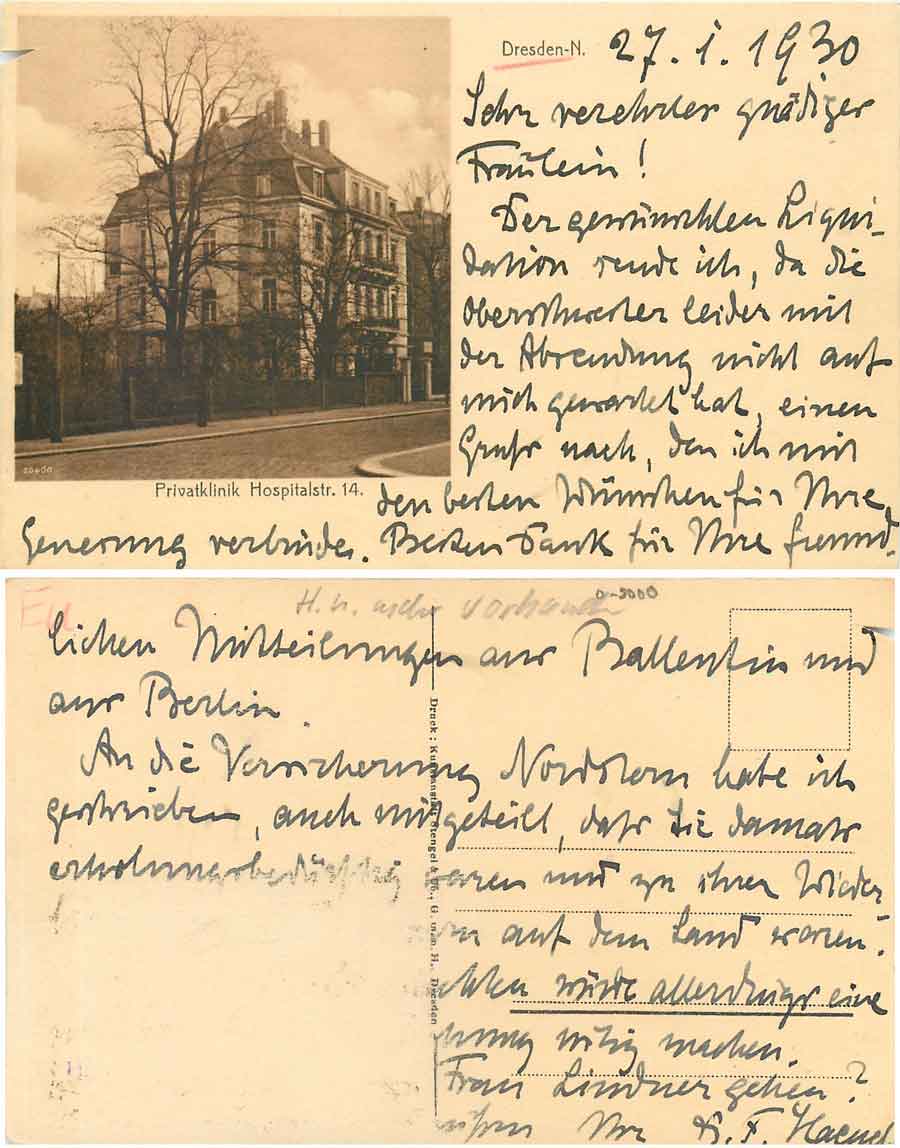 Dresden-N. 27.1.1930
Sehr verehrter gnädiger
Fräulein!
Der gewünschten Liqui-
dation sende ich, da die
Oberschwester leider mit
der Absendung nicht auf
mich gewartet hat, einen
Gruß nach, den ich mit
den besten Wünschen für Ihre
Genesung verbinde. Besten Dank für Ihre freund-
20400
Privatklinik Hospitalstr. 14.
H. n. mehr vorhanden
0-2000
lichen Mitteilungen aus Ballenstin und
aus Berlin.
An die Versicherung Nordstern habe ich
geschrieben, auch mitgeteilt, daß Sie damals
erholungsbedürftig waren und zu ihrer Wieder-
auf dem Land waren.
würde allerdings eine
nötig machen.
Frau Lindner gehen?
Ihr
Druck: Kunstanstalt Stengel & Co., G. m. b. H., Dresden